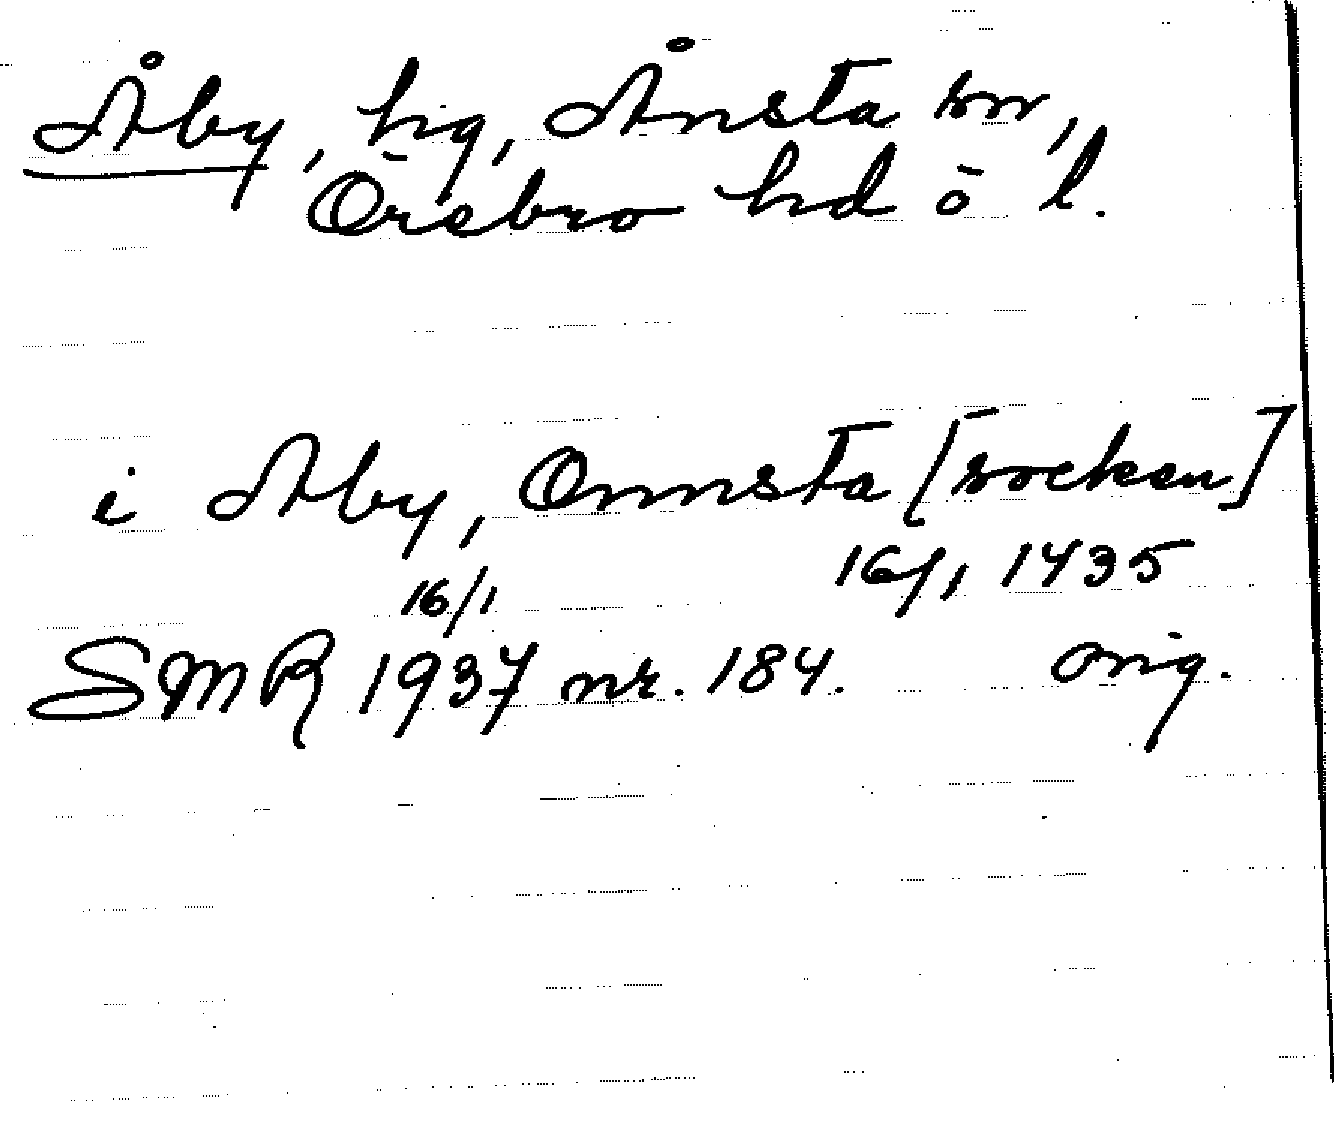 Åby, hg, Ånsta sn,
Örebro hd o l.
i Aby, Onnsta [socken]
16/1 16/1, 1435
SMR 1937 nr. 184. orig.